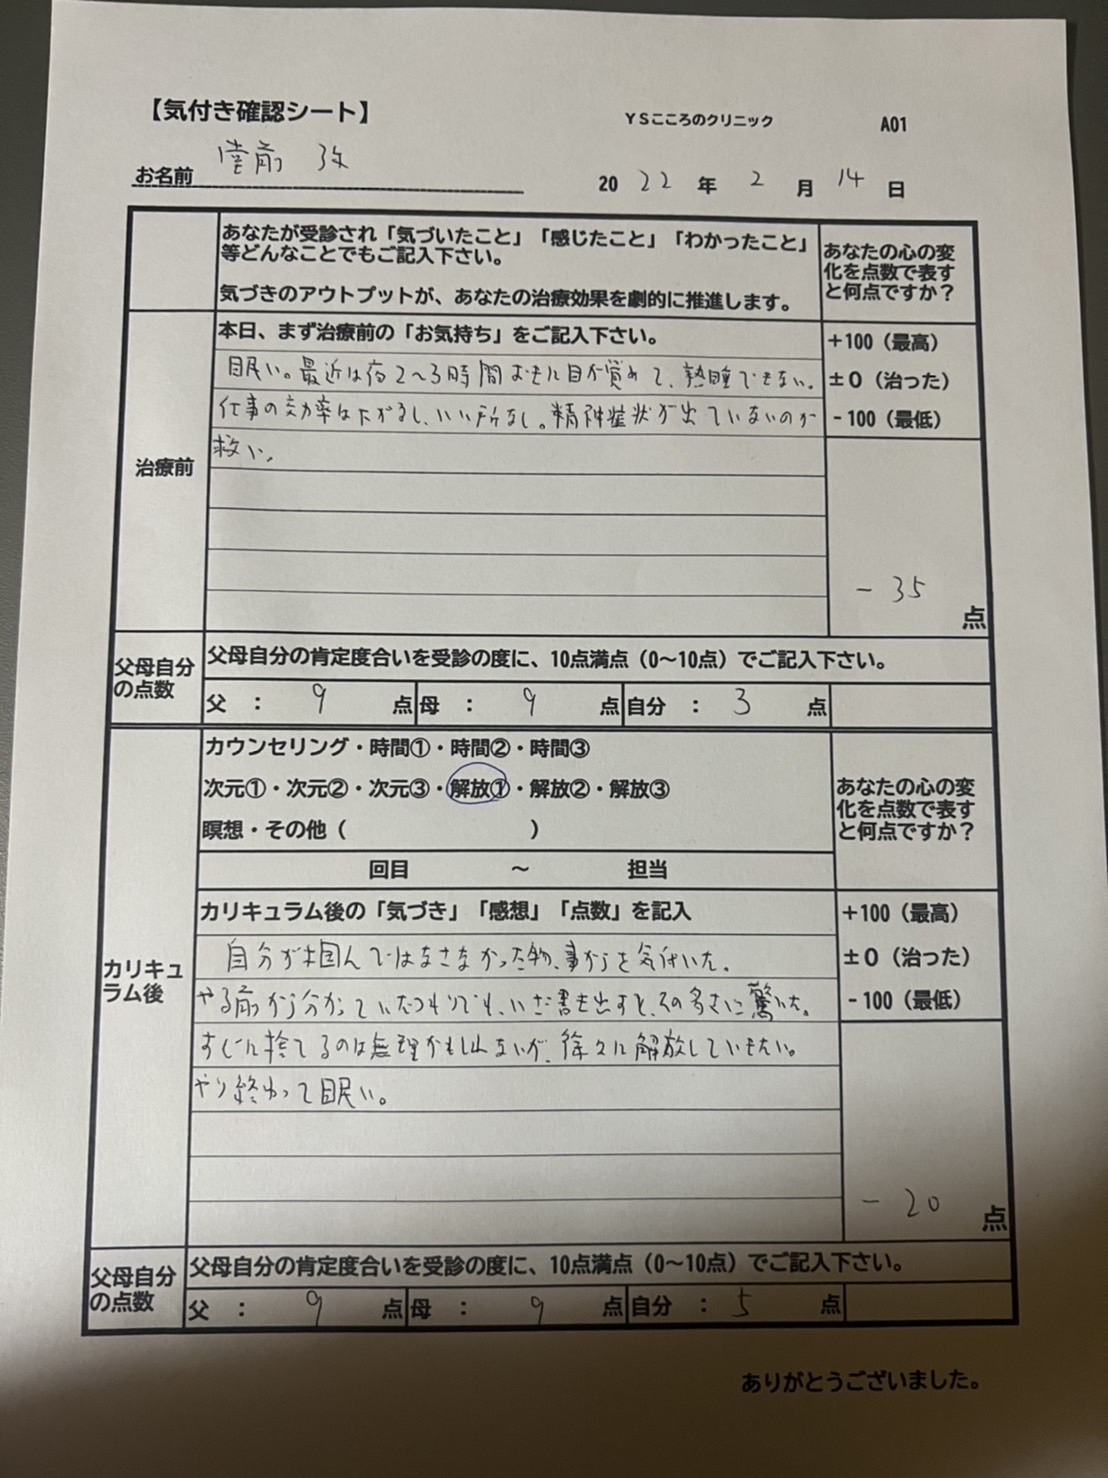 【気付き確認シート】
YSこころのクリニック
A01
お名前
2022年2月14日
あなたが受診され「気づいたこと」「感じたこと」「わかったこと」
等どんなことでもご記入下さい。
気づきのアウトプットが、あなたの治療効果を劇的に推進します。
あなたの心の変
化を点数で表す
と何点ですか？
治療前
本日、まず治療前の「お気持ち」をご記入下さい。
眠い。最近は夜2〜3時間おきに目が覚めて、熟睡できない。
仕事の効率は下がるし、いい所なし。精神症状が出ていないのが
救い。
+100（最高）
±0（治った）
-100（最低）
-35点
父母自分
の点数
父母自分の肯定度合いを受診の度に、10点満点（0〜10点）でご記入下さい。
父：9点 母：9点 自分：3点
カリキュ
ラム後
カウンセリング・時間①・時間②・時間③
次元①・次元②・次元③・解放①・解放②・解放③
瞑想・その他（　　　）
あなたの心の変
化を点数で表す
と何点ですか？
回目 〜 担当
カリキュラム後の「気づき」「感想」「点数」を記入
自分が掴んではなさなかった物、事がらを気付いた。
やる前から分かっていたつもりでも、いざ書き出すと、その多さに驚いた。
すぐに捨てるのは無理かもしれないが、徐々に解放していきたい。
やり終わって眠い。
+100（最高）
±0（治った）
-100（最低）
-20点
父母自分
の点数
父母自分の肯定度合いを受診の度に、10点満点（0〜10点）でご記入下さい。
父：9点 母：9点 自分：5点
ありがとうございました。